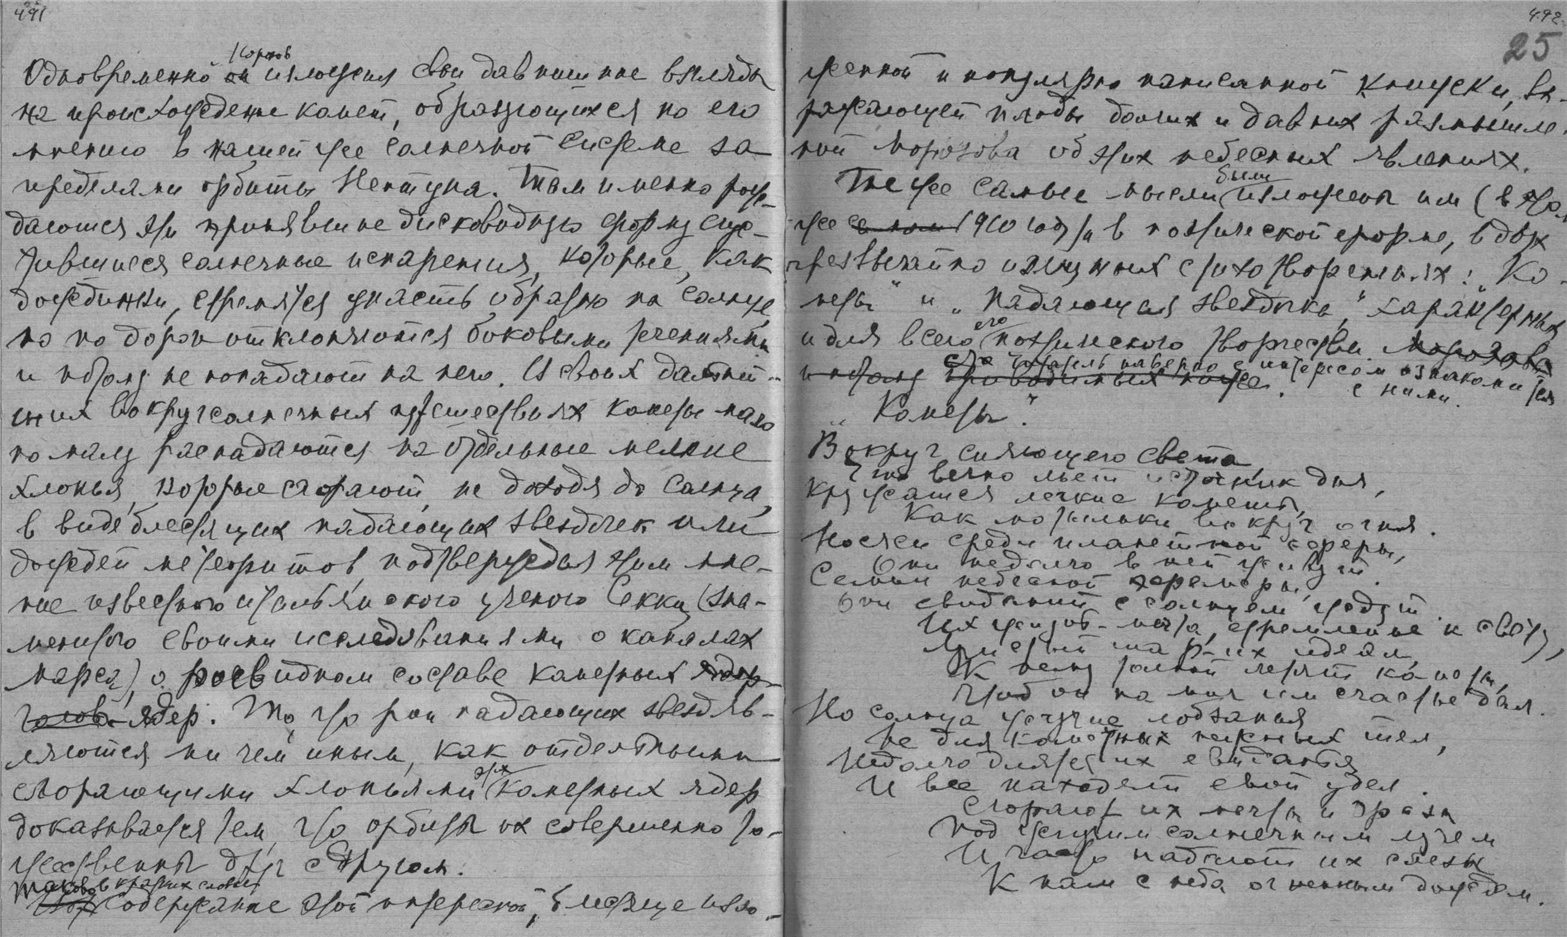 491
Одновременно он изложил свои давнишние взгляды
на происхождение комет, образующихся по его
мнению в нашей же солнечной системе за
пределами орбиты Нептуна. Там именно рож-
даются эти принявшие дисковидную форму сгус-
тившиеся солнечные испарения, которые, как
дождинки, стремятся упасть обратно на солнце,
но по дороге отклоняются боковыми течениями
и потому не попадают на него. В своих дальней-
ших вокругсолнечных путешествиях кометы мало
по малу распадаются на отдельные мелкие
хлопья, которые сгорают, не доходя до Солнца,
в виде блестящих падающих звездочек или
дождей метеоритов, подтверждая этим мне-
ние известного итальянского ученого Секки (зна-
менитого своими исследованиями о каналах
Марса) о роевидном составе кометных
ядер. То, что рои падающих звезд яв-
ляются ни чем иным, как отдельными
сгорающими хлопьями этих кометных ядер
доказывается тем, что орбиты их совершенно то-
жественны друг с другом.
Таково в кратких словах
содержание этой интересной, блестяще изло-
492
25
женной и популярно написанной книжки, вы-
ражающей плоды долгих и давних размышле-
ний Морозова об этих небесных явлениях.
Те же самые мысли были изложены им (в том
же 1910 году) и в поэтической форме, в двух
чрезвычайно изящных стихотворениях: „Ко-
меты" и „Падающая звездочка", характерных
и для всего его поэтического творчества.
и потому читатель наверно с интересом ознакомится
с ними.
„Кометы".
Вокруг сияющего света,
Что вечно льет источник дня,
Кружатся легкие кометы,
Как мотыльки вокруг огня.
Носясь среди планетной сферы,
Они недолго в ней живут.
Семьи небесной эфемеры,
Они свиданий с солнцем ждут.
Их жизнь – мечта, стремленье к свету,
Лучистый шар – их идеал,
К нему толпой летят кометы,
Чтоб он на миг им счастье дал.
Но солнца жгучие лобзанья
Не для кометных нежных тел,
Недолго длятся их свиданья
И все находят свой удел.
Сгорают их мечты и грезы
Под жгучим солнечным лучем
И часто падают их слезы
К нам с неба огненным дождем.